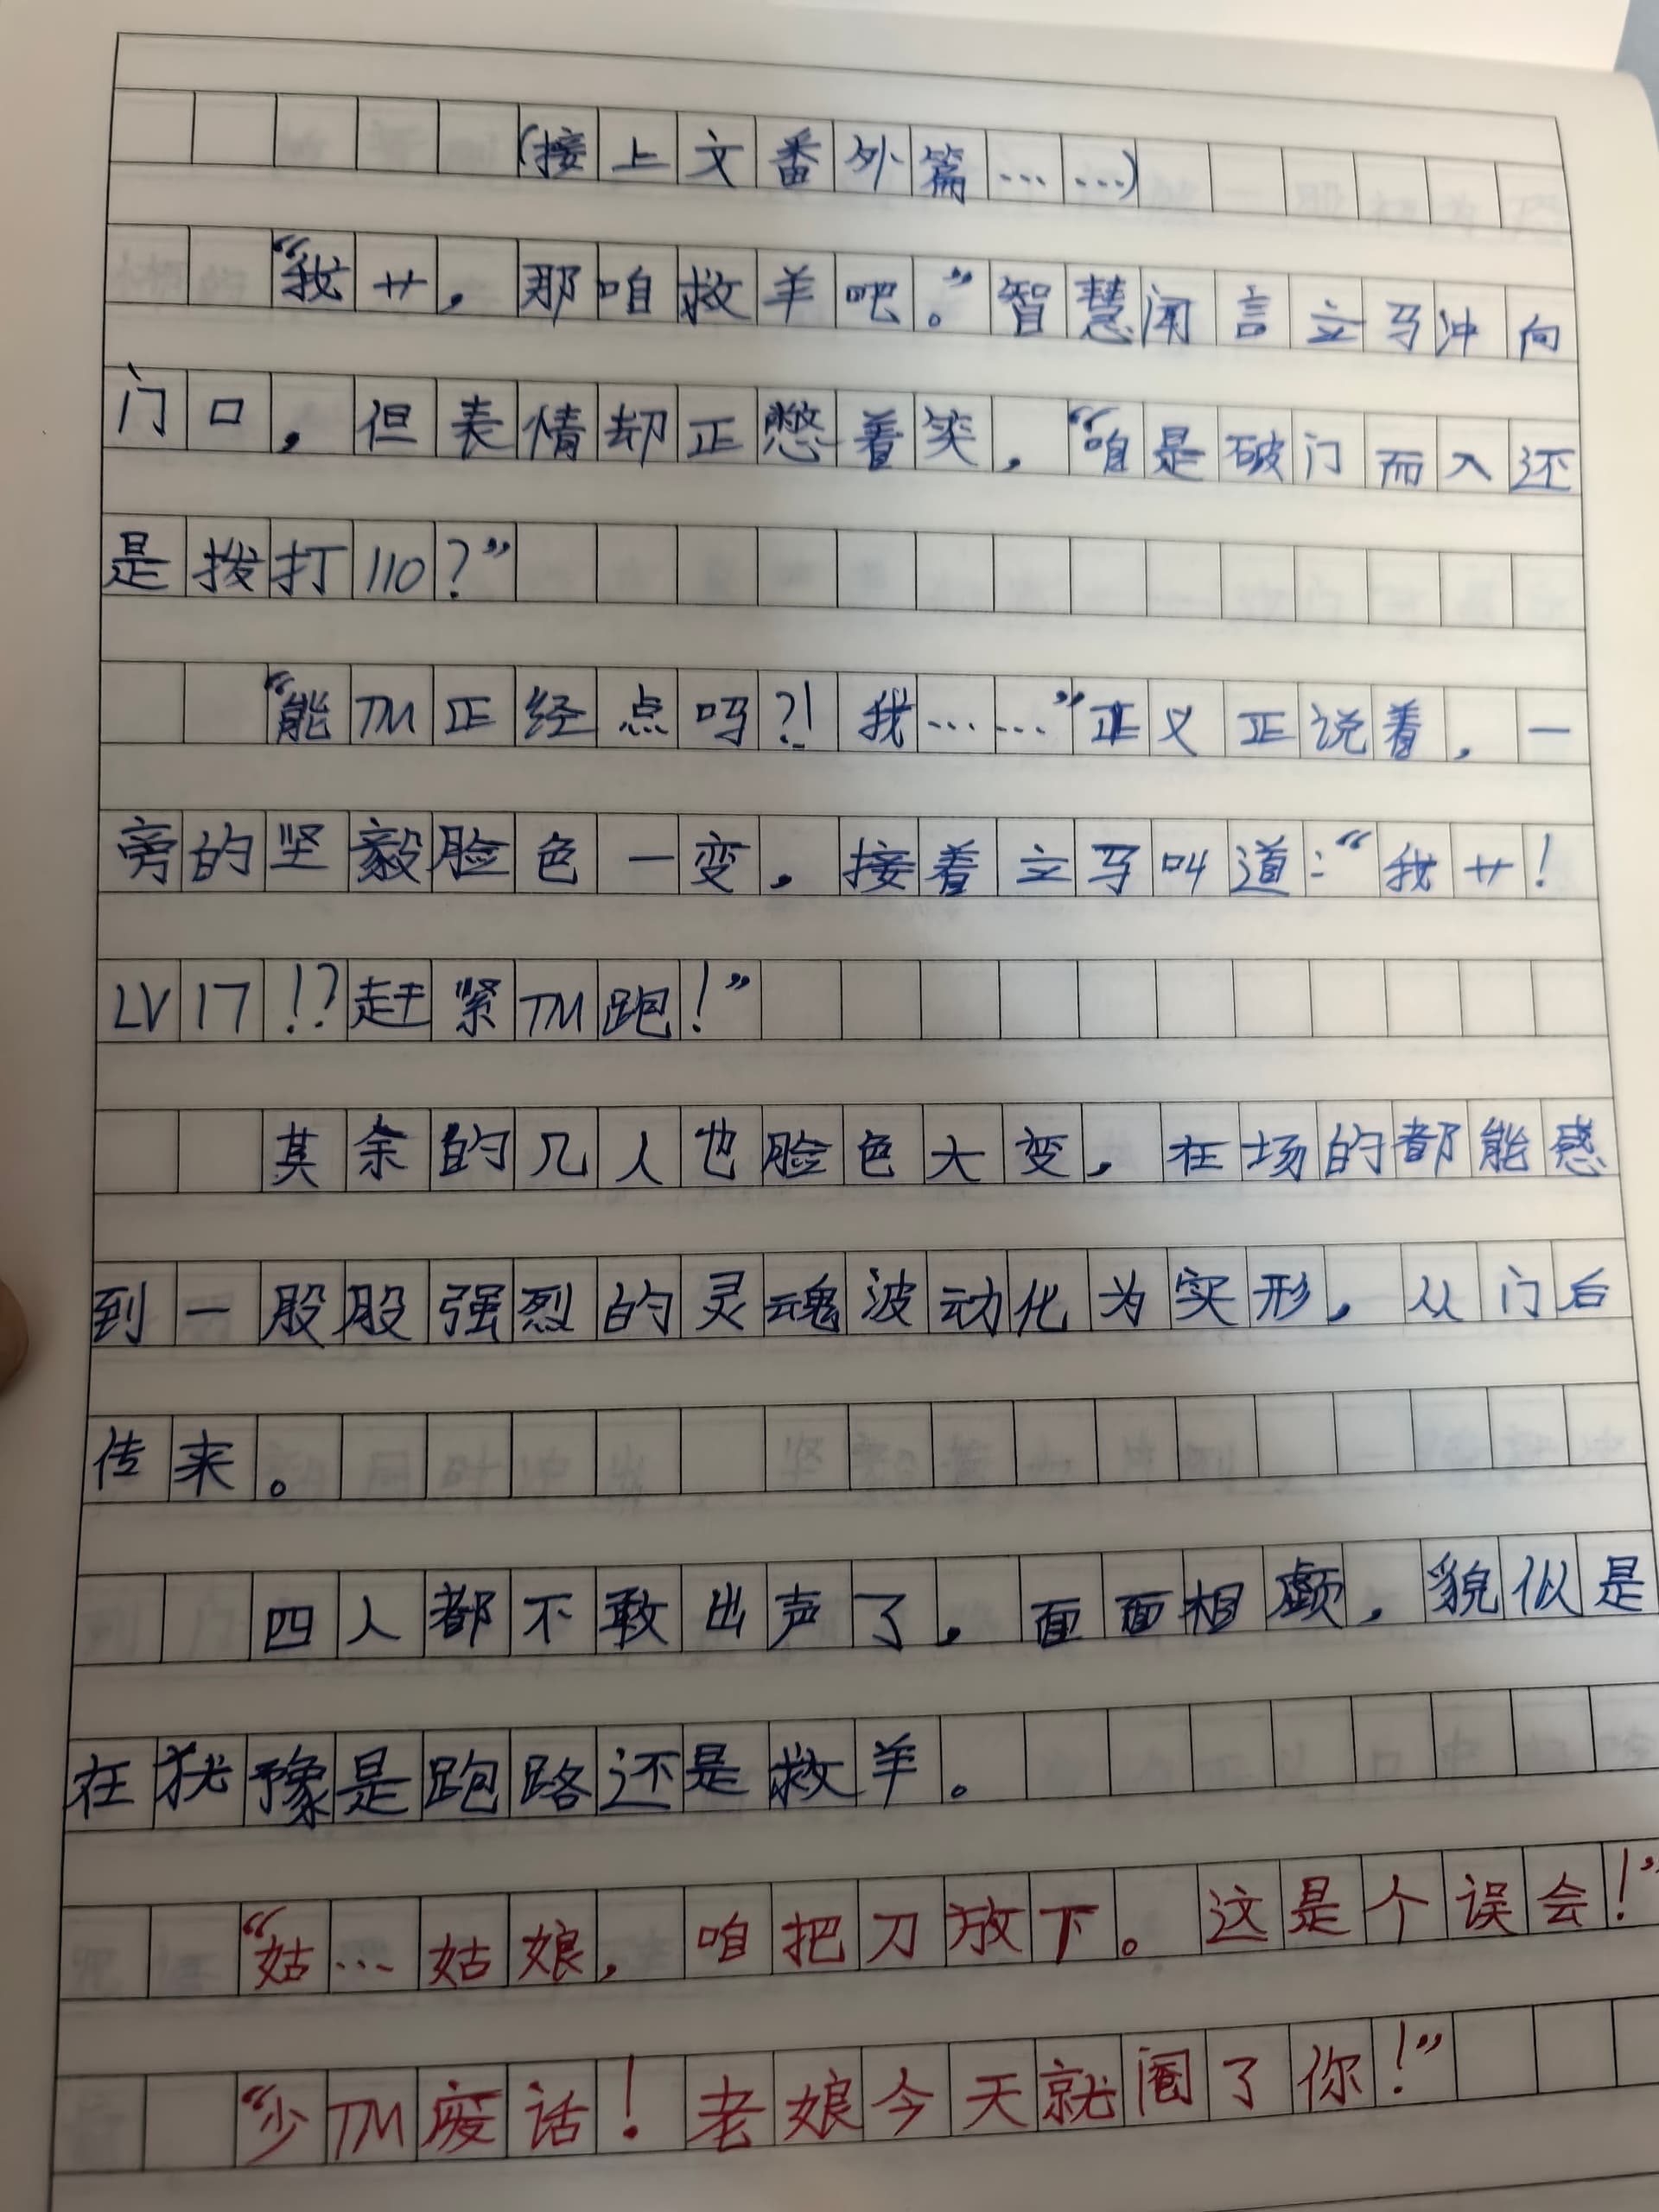 (接上文番外篇……)
“我艹，那咱救羊吧。”智慧闻言立马冲向
门口，但表情却正憋着笑，“咱是破门而入还
是拨打110？”
“能TM正经点吗？！我……”正义正说着，一
旁的坚毅脸色一变，接着立马叫道：“我艹！
LV17！？赶紧TM跑！”
其余的几人也脸色大变，在场的都能感
到一股股强烈的灵魂波动化为实形，从门后
传来。
四人都不敢出声了，面面相颇，貌似是
在犹豫是跑路还是救羊。
“姑…姑娘，咱把刀放下。这是个误会！”
“少TM废话！老娘今天就阉了你！”